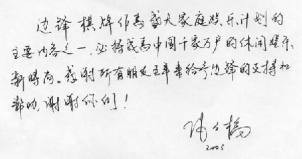 边锋棋牌作为盛大家庭娱乐计划的
主要内容之一，必将成为中国千家万户的休闲娱乐
新时尚。感谢所有朋友五年来给予边锋的支持和
帮助，谢谢你们！
2005